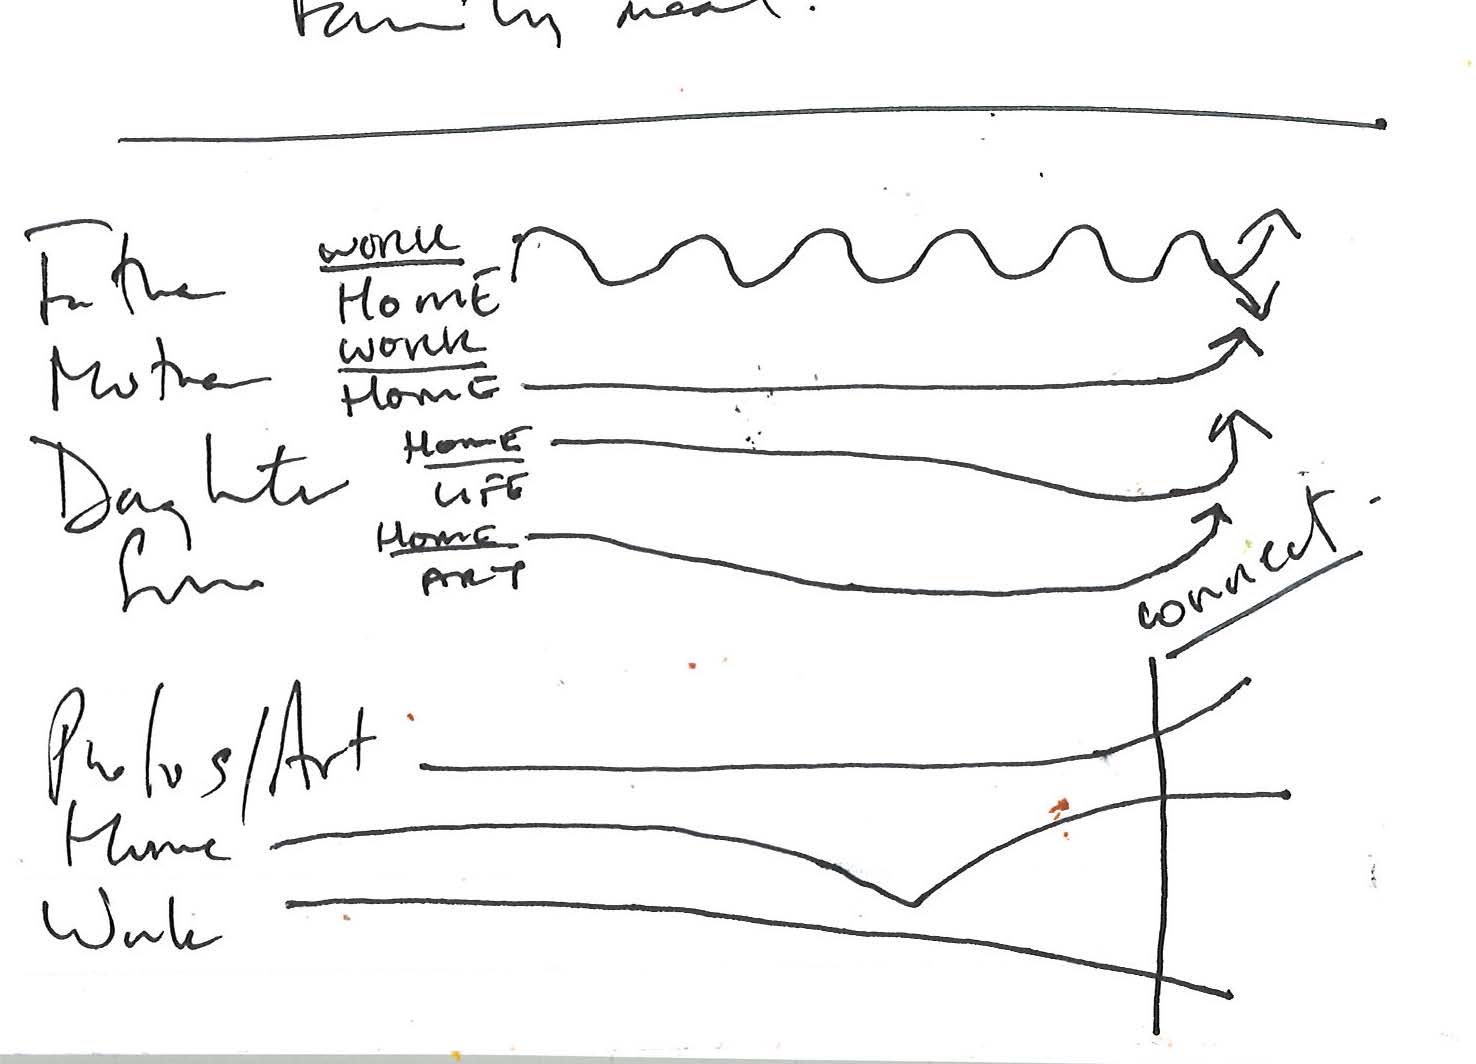 Family meal.
Father WORK
HOME
Mother WORK
HOME
Daughter HOME
LIFE
Son HOME
ART
connect.
Photos/Art
Home
Work